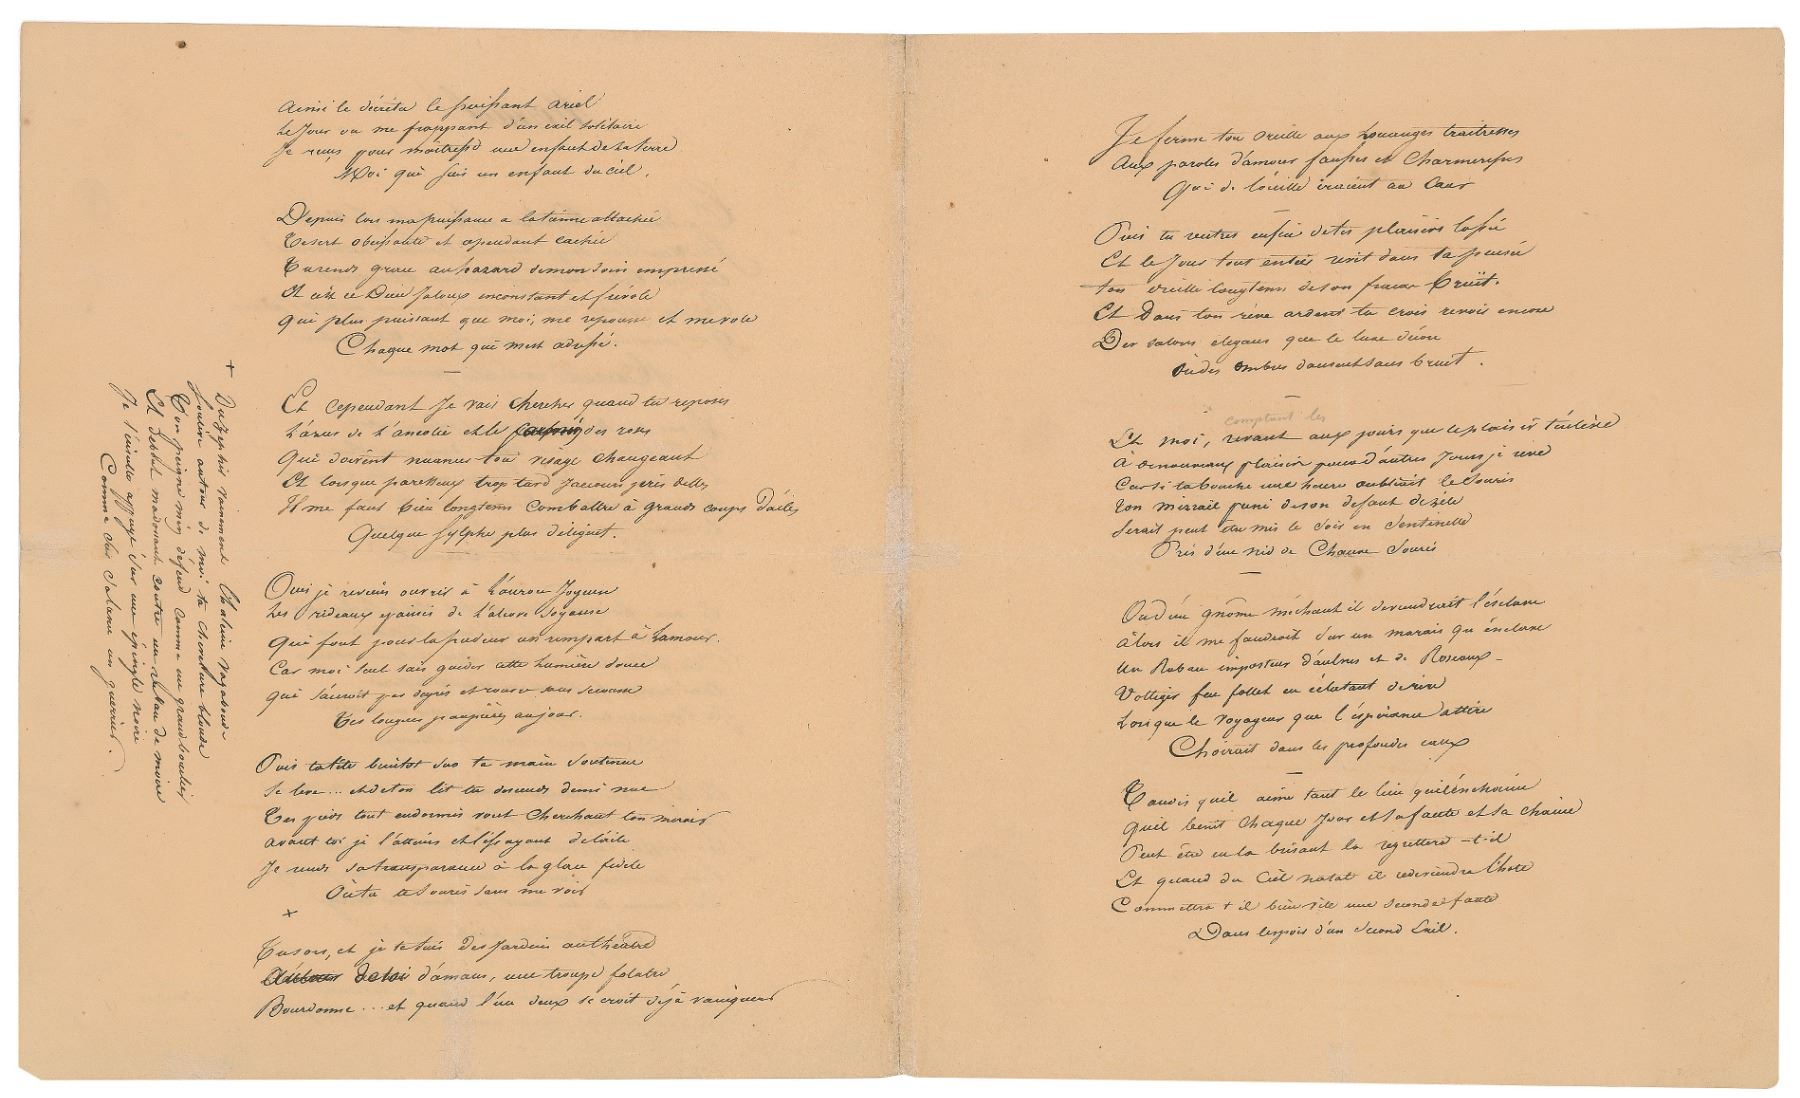 Ainsi le décréta le puissant ariel
Le Jour ou me frappant d'un exil solitaire
Je reçus pour maîtresse une enfant de la terre
Moi qui suis un enfant du ciel.
Depuis lors ma puissance a la tienne attachée
Te sert obéissante et cependant cachée
Tu rends grace au hazard de mon soin empressé
Et c'est ce Dieu Jaloux inconstant et frivole
Qui plus puissant que moi, me repousse et me vole
Chaque mot qui m'est adressé.
Et cependant Je vais chercher quand tu reposes
L'azur de l'ancolie et le des roses
Qui doivent nuancer ton visage changeant
Et lorsque paresseux trop tard J'accours près d'elles
Il me faut bien longtems combattre à grands coups d'ailes
Quelque sylphe plus diligent.
Puis je reviens ouvrir à l'aurore Joyeuse
Les rideaux épaissis de l'alcove soyeuse
Qui font pour la pudeur un rempart à l'amour.
Car moi seul sais guider cette lumière douce
Qui s'accroit par degrés et ouvre sans secousse
Tes longues paupières au jour.
Puis ta tête bientôt sur ta main soutenue
Se leve... et de ton lit tu descends demi nue
Tes pieds tout endormis vont cherchant ton miroir
Avant toi je l'atteins et l'essayant de l'aile
Je rends sa transparence à la glace fidele
Où tu te souris sans me voir
+
Tu sors, et je te suis des Jardins au théatre
Autour de toi d'amans, une troupe folatre
Bourdonne... et quand l'un deux se croit déjà vainqueur
+
Du zéphir rarement l'haleine vagabonde
Soulève autour de moi ta chevelure blonde
Ton peigne m'en défend comme un grand bouclier
Et debout m'adossant contre un ruban de moire
Je t'éveille appuyé sur une épingle noire
Comme sur sa lance un guerrier.
Je ferme ton oreille aux louanges traitresses
Aux paroles d'amour fausses et charmeresses
Qui de l'oreille iraient au cœur
Puis tu rentres enfin de tes plaisirs lassée
Et le Jour tout entier revit dans ta pensée
ton oreille longtems de son fracas bruit.
Et dans ton rêve ardent tu crois revoir encore
Des salons élégans que le luxe décore
Où des ombres dansent sans bruit.
comptant les
Et moi, revant aux jours que le plaisir t'enlève
À de nouveaux plaisirs pour d'autres Jours je reve
Car si ta bouche une heure oubliait le Souris
Ton miroir puni de son défaut de zèle
Serait peut être mis le soir en sentinelle
Près d'un nid de Chauve Souris
Ou d'un gnôme méchant il deviendrait l'esclave
Alors il me faudroit sur un marais qu'enclave
Un Ruban imposteur d'aulnes et de Roseaux-
Voltiger feu follet en éclatant de rire
Lorsque le voyageur que l'espérance attire
Choirait dans les profondes eaux
Tandis qu'il aime tant le lien qui l'enchaine
Qu'il benit chaque Jour et sa faute et sa chaine
Peut être en la brisant la regrettera-t-il
Et quand du Ciel natal il redeviendra l'hote
Commettra t il bien vite une seconde faute
Dans l'espoir d'un second Exil.